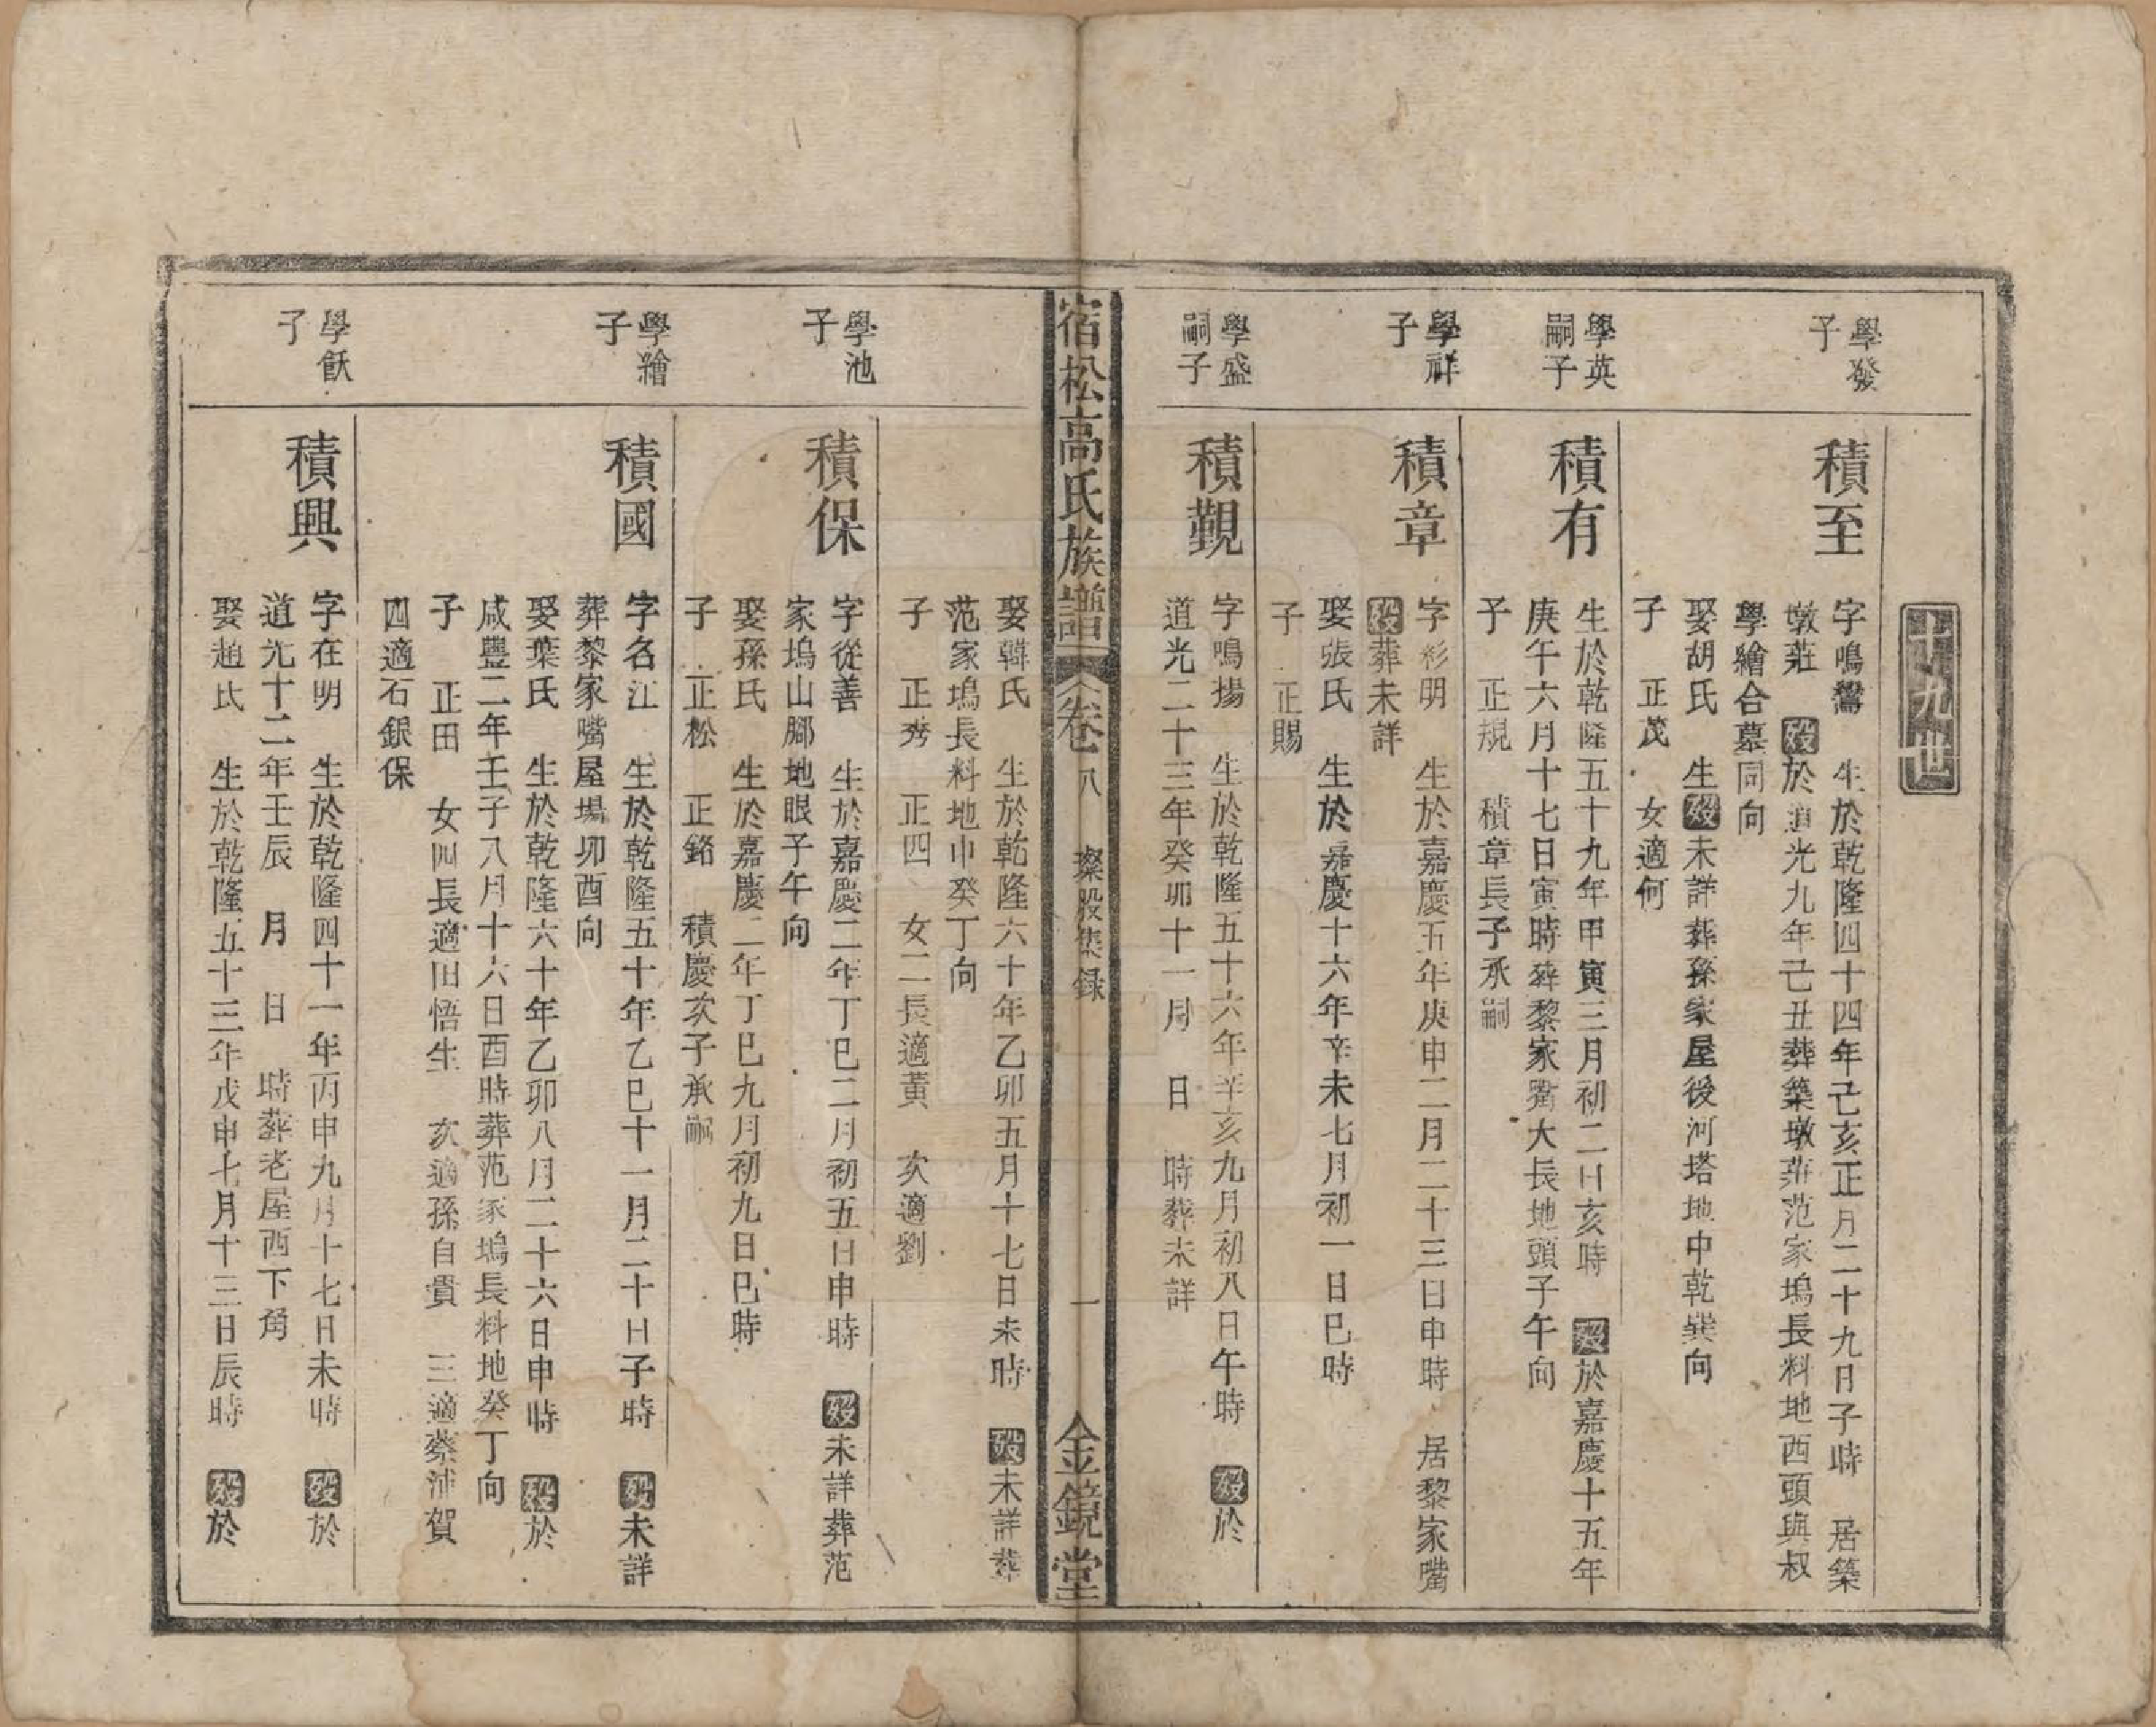 十九世
學發
子
積至
字鳴鸞 生於乾隆四十四年己亥正月二十九日子時 居築
墩莊 殁於道光九年己丑葬築墩莊范家塢長料地酉頭與叔
學繪合墓同向
娶胡氏 生殁未詳葬孫家屋後河塔地中乾巽向
子 正茂 女適何
學英
嗣子
積有
生於乾隆五十九年甲寅三月初二日亥時 殁於嘉慶十五年
庚午六月十七日寅時葬黎家嘴大長地頭子午向
子 正規 積章長子承嗣
學祥
子
積章
字彩明 生於嘉慶五年庚申二月二十三日申時 居黎家嘴
殁葬未詳
娶張氏 生於嘉慶十六年辛未七月初一日巳時
子 正賜
學盛
嗣子
積觀
字鳴揚 生於乾隆五十六年辛亥九月初八日午時 殁於
道光二十三年癸卯十一月 日 時葬未詳
宿松高氏族譜 卷八 璨股集録 一 金鏡堂
娶韓氏 生於乾隆六十年乙卯五月十七日未時 殁未詳葬
范家塢長料地巾癸丁向
子 正秀 正四 女二長適黃 次適劉
學池
子
積保
字從善 生於嘉慶二年丁巳二月初五日申時 殁未詳葬范
家塢山腳地眼子午向
娶孫氏 生於嘉慶二年丁巳九月初九日巳時
子 正松 正銘 積慶次子承嗣
學繪
子
積國
字名江 生於乾隆五十年乙巳十一月二十日子時 殁未詳
葬黎家嘴屋場卯酉向
娶葉氏 生於乾隆六十年乙卯八月二十六日申時 殁於
咸豐二年壬子八月十六日酉時葬范家塢長料地癸丁向
子 正田 女四長適田悟生 次適孫自貴 三適蔡沛賀
四適石銀保
學飫
子
積興
字在明 生於乾隆四十一年丙申九月十七日未時 殁於
道光十二年壬辰 月 日 時葬老屋西下角
娶趙氏 生於乾隆五十三年戊申七月十三日辰時 殁於